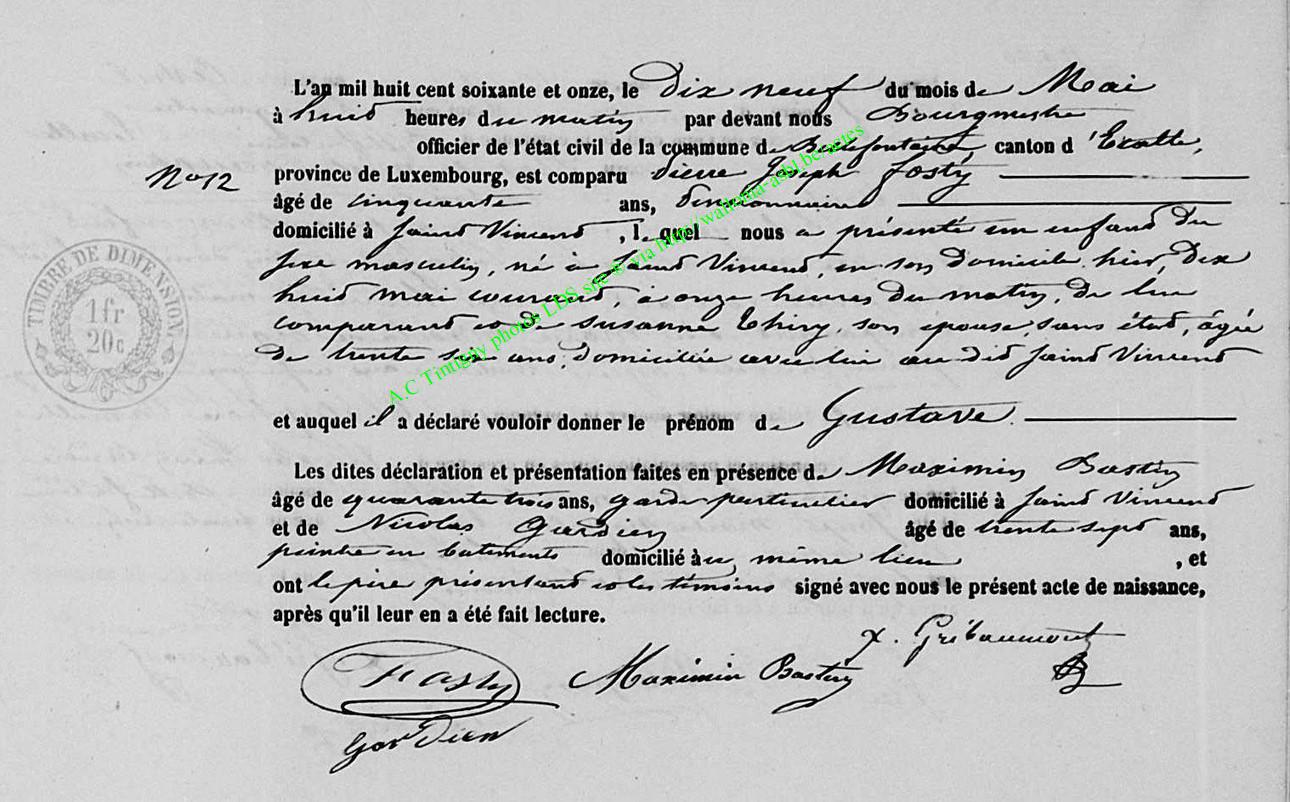 L'an mil huit cent soixante et onze, le Dix neuf du mois de Mai
à huit heures du matin par devant nous Bourgmestre
officier de l'état civil de la commune de Bellefontaine, canton d'Etalle,
No 12
province de Luxembourg, est comparu Pierre Joseph Fosty
âgé de cinquante ans, Pensionnaire
domicilié à Saint Vincent, lequel nous a présenté un enfant du
sexe masculin, né à Saint Vincent, en son domicile, hier, Dix
huit mai courant, à onze heures du matin, de lui
comparant et de Susanne Thiry, son épouse, sans état, âgée
de trente six ans, domiciliée avec lui au dit Saint Vincent
et auquel il a déclaré vouloir donner le prénom de Gustave.
Les dites déclaration et présentation faites en présence de Maximin Bastin
âgé de quarante trois ans, garde particulier domicilié à Saint Vincent
et de Nicolas Gardien âgé de trente sept ans,
peintre en batiments domicilié au même lieu, et
ont le père présentant et les témoins signé avec nous le présent acte de naissance,
après qu'il leur en a été fait lecture.
x. Gribaumont
Fasty Maximin Bastin
Gardien
TIMBRE DE DIMENSION
1 fr
20 c
A.C Tintigny photos LDS site © via http://wallonia-asbl.be/actes